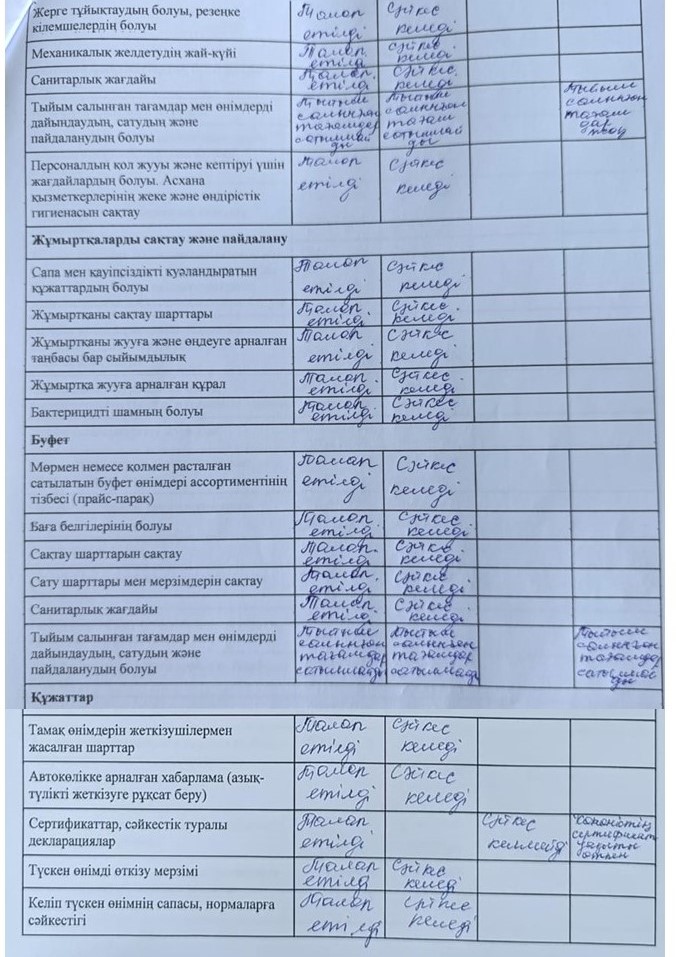 Жерге тұйықтаудың болуы, резеңке
кілемшелердің болуы
Талап етілді
Сәйкес келеді
Механикалық желдетудің жай-күйі
Талап етілді
Сәйкес келеді
Санитарлық жағдайы
Талап етілді
Сәйкес келеді
Тыйым салынған тағамдар мен өнімдерді
дайындаудың, сатудың және
пайдаланудың болуы
Тыйым
салынған
тағамдар
сатылмай
ды
Тыйым
салынған
тағам
сатылмай
ды
Тыйым
салынған
тағам
дар
жоқ
Персоналдың қол жууы және кептіруі үшін
жағдайлардың болуы. Асхана
қызметкерлерінің жеке және өндірістік
гигиенасын сақтау
Талап етілді
Сәйкес келеді
Жұмыртқаларды сақтау және пайдалану
Сапа мен қауіпсіздікті куәландыратын
құжаттардың болуы
Талап етілді
Сәйкес келеді
Жұмыртқаны сақтау шарттары
Талап етілді
Сәйкес келеді
Жұмыртқаны жууға және өңдеуге арналған
таңбасы бар сыйымдылық
Талап етілді
Сәйкес келеді
Жұмыртқа жууға арналған құрал
Талап етілді
Сәйкес келеді
Бактерицидті шамның болуы
Талап етілді
Сәйкес келеді
Буфет
Мөрмен немесе қолмен расталған
сатылатын буфет өнімдері ассортиментінің
тізбесі (прайс-парақ)
Талап етілді
Сәйкес келеді
Баға белгілерінің болуы
Талап етілді
Сәйкес келеді
Сақтау шарттарын сақтау
Талап етілді
Сәйкес келеді
Сату шарттары мен мерзімдерін сақтау
Талап етілді
Сәйкес келеді
Санитарлық жағдайы
Талап етілді
Сәйкес келеді
Тыйым салынған тағамдар мен өнімдерді
дайындаудың, сатудың және
пайдаланудың болуы
Тыйым
салынған
тағамдар
сатылмайды
Тыйым
салынған
тағамдар
сатылмайды
Тыйым
салынған
тағамдар
сатылмай
ды
Құжаттар
Тамақ өнімдерін жеткізушілермен
жасалған шарттар
Талап етілді
Сәйкес келеді
Автокөлікке арналған хабарлама (азық-
түлікті жеткізуге рұқсат беру)
Талап етілді
Сәйкес келеді
Сертификаттар, сәйкестік туралы
декларациялар
Талап етілді
Сәйкес
келмейді
сертификат
уақыты
өткен
Түскен өнімді өткізу мерзімі
Талап етілді
Сәйкес келеді
Келіп түскен өнімнің сапасы, нормаларға
сәйкестігі
Талап етілді
Сәйкес келеді